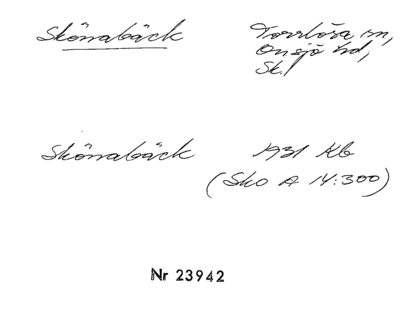 Skönabäck Torrlösa sn,
Onsjö hd,
Sk.
Skönabäck 1931 Kb
(Sko A 14:300)
Nr 23942